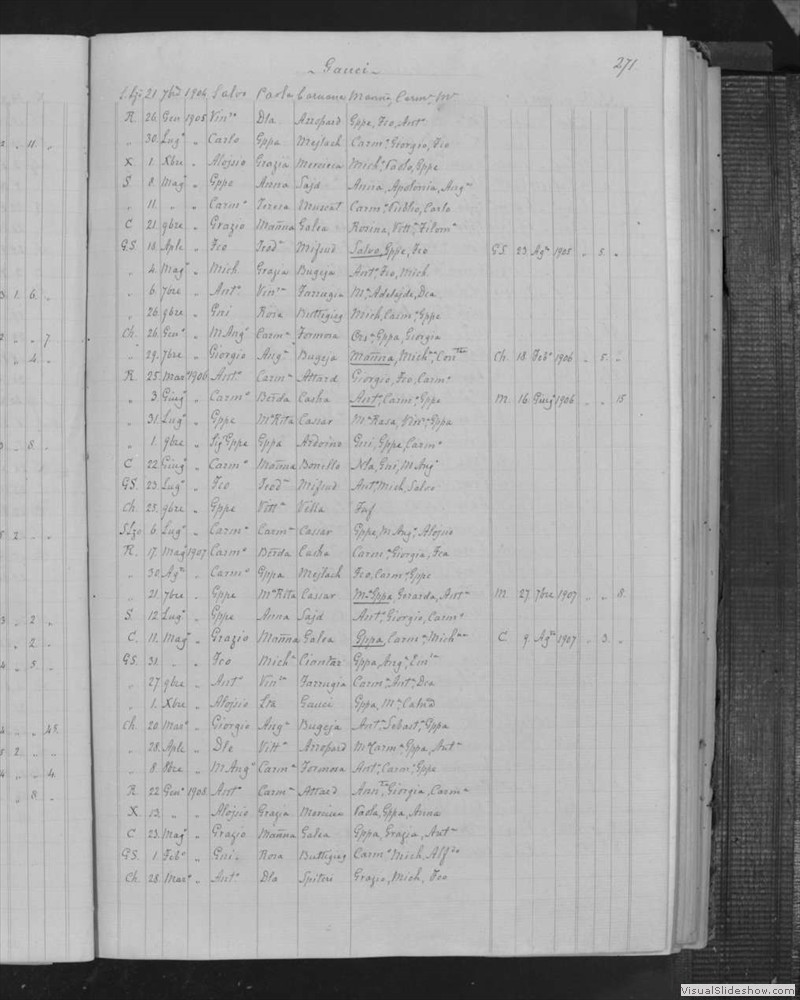 271
Gauci
S. Lzo 21 7bre 1906 Salvo Paola Caruana Mañna, Carmª, Mª
R. 26 Gen 1905 Vincº Dla Azzopard Gppe, Fco, Antª
" 30 Lugº " Carlo Gppa Mejlach Carmª, Giorgio, Fco
X 1 Xbre " Alojsio Grazia Mercieca Michº, Paolo, Gppe
S 8 Magº " Gppe Anna Sajd Anna, Apolonia, Angª
" 11 " " Carmº Teresa Muscat Carmª, Publio, Carlo
C 21 9bre " Grazio Mañna Galea Rosina, Vittª, Filomª
GS. 18 Aple " Fco Teodª Mifsud Salvo, Gppe, Fco GS. 23 Agº 1905 " 5 "
" 4 Magº " Mich. Grazia Bugeja Antº, Fco, Mich
" 6 7bre " Antº Vincª Farrugia Mª, Adelajde, Dca
" 26 9bre " Gni Rosa Buttigieg Mich, Carmª, Gppe
Ch. 26 Genº " M Angº Carmª Formosa Gppa, Giorgia
" 29 7bre " Giorgio Angª Bugeja Mañna, Michª, Conttª Ch. 18 Febº 1906 " 5 "
R. 25 Marº 1906 Antº Carmª Attard Giorgio, Fco, Carmº
" 3 Giugº " Carmº Berda Cacha Antª, Carmª, Gppe M. 16 Giugº 1906 " " 15
" 31 Lugº " Gppe Mª Rita Cassar Mª Rosa, Vincª, Gppa
" 1 9bre " Sigº Gppe Gppa Gni, Gppe, Carmº
C 22 Giugº " Carmº Mañna Bonello Nla, Gni, M Angº
GS. 23 Lugº " Fco Teodª Mifsud Antº, Mich, Salvo
Ch. 25 9bre " Gppe Vittª Vella
S Lzo 6 Lugº " Carmº Carmª Cassar Gppe, M Angº, Alojsio
R. 17 Magº 1907 Carmº Berda Cacha Carmª, Giorgia, Fca
" 30 Agº " Carmº Gppa Mejlach Fco, Carmª, Gppe
" 21 7bre " Gppe Mª Rita Cassar Mª Gppa, Gerarda, Antª M. 27 7bre 1907 " " 8
S. 12 Lugº " Gppe Anna Sajd Antº, Giorgio, Carmº
C. 11 Magº " Grazio Mañna Galea Gppa, Carmª, Michª C. 9 Agº 1907 " 3 "
GS. 31 " " Fco Michª Ciantar Gppa, Angª, Emª
" 27 9bre " Antº Vincª Farrugia Carmª, Antª, Dca
" 1 Xbre " Alojsio Lra Gauci Gppa, Mª, Catnª
Ch. 20 Marº " Giorgio Angª Bugeja Antº, Sebastº, Gppa
" 28 Aple " Dle Vittª Azzopard Mª Carmª, Gppa, Antª
" 8 8bre " M Angº Carmª Formosa Antº, Carmª, Gppe
R 22 Genº 1908 Antº Carmª Attard Giorgia, Carmª
X. 13 " " Alojsio Grazia Mercieca Paola, Gppa, Anna
C 23 Magº " Grazio Mañna Galea Gppa, Grazia, Antª
GS. 1 Febº " Gni. Rosa Buttigieg Carmª, Mich, Alfdo
Ch. 28 Marº " Antº Dla Spiteri Grazio, Mich, Fco
VisualSlideshow.com